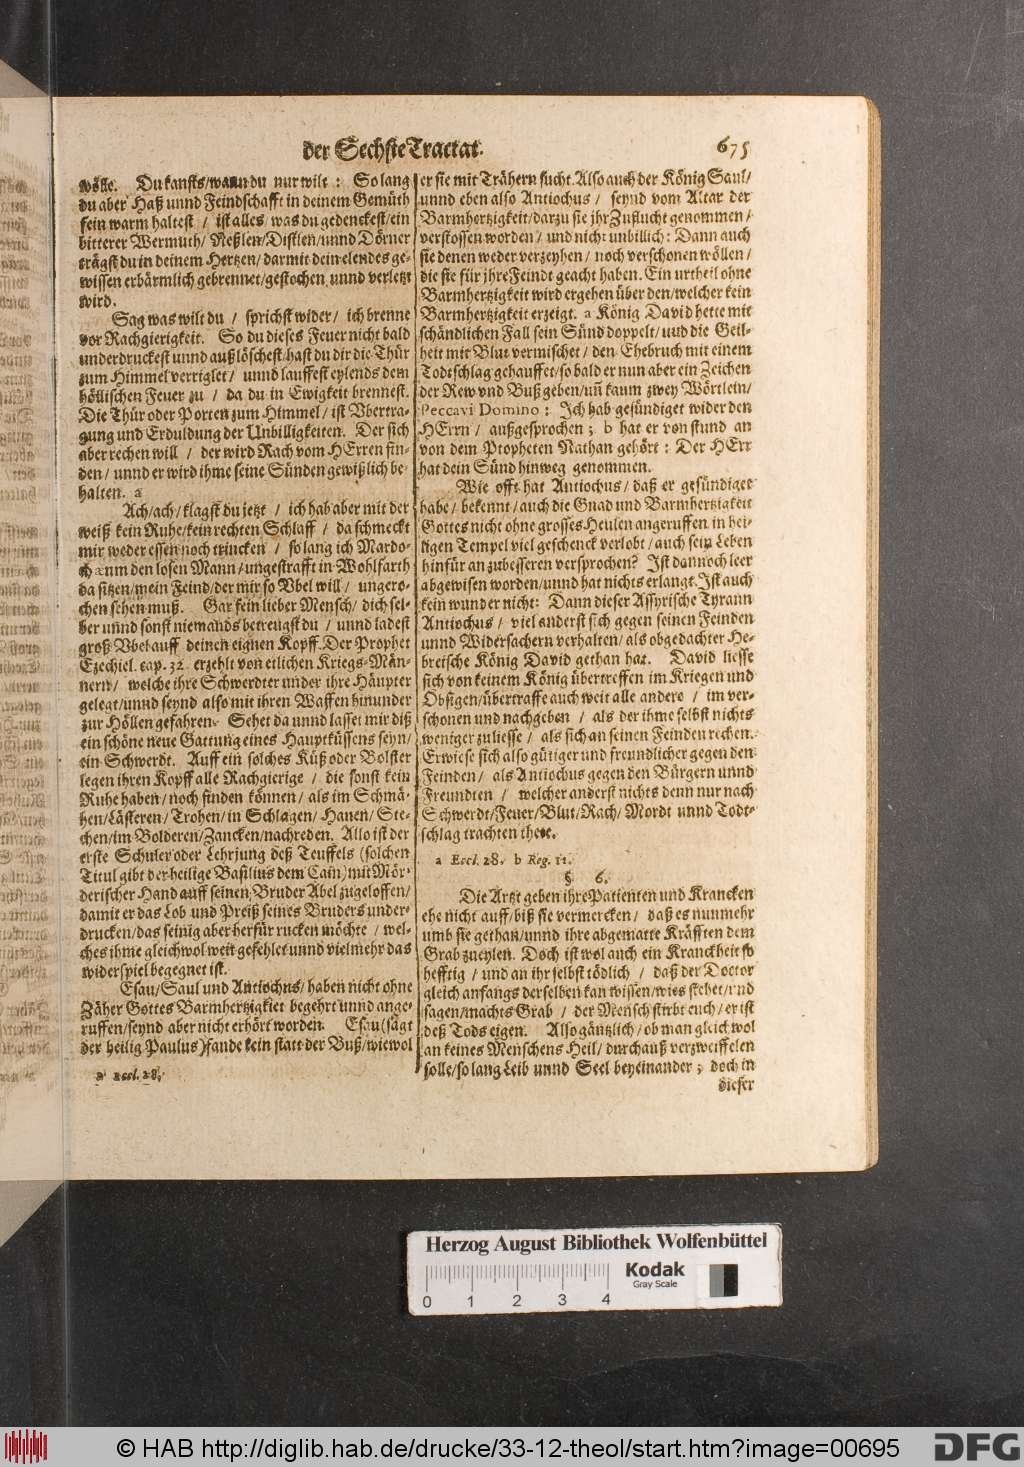 der Sechste Tractat.
675
wölle. Du kansts/wann du nur wilt: So lang
du aber Haß unnd Feindschafft in deinem Gemüth
fein warm haltest / ist alles/ was du gedenckest/ein
bitterer Wermuth/ Neßlen/Distlen/unnd Dörner
trägst du in deinem Hertzen/darmit dein elendes ge-
wissen erbärmlich gebrennet/gestochen unnd verletzt
wird.
Sag was wilt du / sprichst wider/ ich brenne
vor Rachgierigkeit. So du dieses Feuer nicht bald
underdruckest unnd außlöschest/hast du dir die Thür
zum Himmel verriglet / unnd lauffest eylends dem
höllischen Feuer zu / da du in Ewigkeit brennest.
Die Thür oder Porten zum Himmel/ ist Vbertra-
gung und Erduldung der Unbilligkeiten. Der sich
aber rechen will / der wird Rach vom HErren fin-
den/ unnd er wird ihme seine Sünden gewißlich be-
halten. a
Ach/ach/klagst du jetzt / ich hab aber mit der
weiß kein Ruhe/kein rechten Schlaff / da schmeckt
mir weder essen noch trincken / so lang ich Mardo-
chæum den losen Mann/ungestrafft in Wohlfarth
da sitzen/mein Feind/der mir so Vbel will/ ungero-
chen sehen muß. Gar kein lieber Mensch/ dich sel-
ber unnd sonst niemands betreugst du / unnd ladest
groß Vbel auff deinen eignen Kopff. Der Prophet
Ezechiel. cap. 32 erzehlt von etlichen Kriegs-Män-
nern/ welche ihre Schwerdter under ihre Häupter
gelegt/unnd seynd also mit ihren Waffen hinunder
zur Höllen gefahren. Sehet da unnd lasset mir diß
ein schöne neue Gattung eines Hauptküssens seyn/
ein Schwerdt. Auff ein solches Küß oder Bolster
legen ihren Kopff alle Rachgierige / die sonst kein
Ruhe haben/noch finden können/als im Schmä-
hen/Lästeren/Trohen/in Schlagen/Hauen/Ste-
chen/im Bolderen/Zancken/nachreden. Allo ist der
erste Schuler oder Lehrjung deß Teuffels (solchen
Titul gibt der heilige Basilius dem Cain) mit Mör-
derischer Hand auff seinen Bruder Abel zugeloffen/
damit er das Lob und Preiß seines Bruders under-
drucken/das seinig aber herfür rucken möchte / wel-
ches ihme gleichwol weit gefehlet unnd vielmehr das
widerspiel begegnet ist.
Esau/Saul und Antiochus/haben nicht ohne
Zäher Gottes Barmhertzigkiet begehrt unnd ange-
ruffen/seynd aber nicht erhört worden. Esau (sagt
der heilig Paulus) fande kein statt der Buß/wiewol
a Eccl. 28.
er sie mit Trähern sucht. Also auch der König Saul/
unnd eben also Antiochus / seynd vom Altar der
Barmhertzigkeit/darzu sie ihr Zuflucht genommen/
verstossen worden/ und nicht unbillich: Dann auch
sie denen weder verzeyhen/ noch verschonen wöllen/
die sie für jhre Feindt geacht haben. Ein urtheil ohne
Barmhertzigkeit wird ergehen über den/welcher kein
Barmhertzigkeit erzeigt. a König David hette mit
schändlichen Fall sein Sünd doppelt/ uud die Geil-
heit mit Blut vermischet/ den Ehebruch mit einem
Todtschlag gehauffet/so bald er nun aber ein Zeichen
der Rew vnd Buß geben/uñ kaum zwey Wörtlein/
Peccavi Domino: Ich hab gesündiget wider den
HErrn / außgesprochen; b hat er von stund an
von dem Ptopheten Nathan gehört: Der HErr
hat dein Sünd hinweg genommen.
Wie offt hat Antiochus/ daß er gesündiget
habe/ bekennt/auch die Gnad und Barmhertzigkeit
Gottes nicht ohne grosses Heulen angeruffen in hei-
ligen Tempel viel geschenck verlobt/auch sein Leben
hinfür an zubesseren versprochen? Ist dannoch leer
abgewisen worden/unnd hat nichts erlangt. Ist auch
kein wunder nicht: Dann dieser Assyrische Tyrann
Antiochus/ viel anderst sich gegen seinen Feinden
unnd Widersachern verhalten/als obgedachter He-
breische König David gethan hat. David liesse
sich von keinem König übertreffen im Kriegen und
Obsigen/übertraffe auch weit alle andere / im ver-
schonen und nachgeben / als der ihme selbst nichts
weniger zuliesse/ als sich an seinen Feinden rechen.
Erwiese sich also gütiger und freundlicher gegen den
Feinden/ als Antiochus gegen den Bürgern unnd
Freundten / welcher anderst nichts denn nur nach
Schwerdt/Feuer/Blut/Rach/ Mordt unnd Todt-
schlag trachten thete.
a Eccl. 28. b Reg. 11.
§ 6.
Die Artzt geben ihre Patienten und Krancken
ehe nicht auff/biß sie vermercken/ daß es nunmehr
umb sie gethan/unnd ihre abgematte Kräfften dem
Grab zueylen. Doch ist wol auch ein Kranckheit so
hefftig / und an ihr selbst tödlich / daß der Doctor
gleich anfangs derselben kan wissen/wies stehet/und
sagen/machts Grab / der Mensch stirbt euch/er ist
deß Tods eigen. Also gäntzlich/ob man gleich wol
an keines Menschens Heil/durchauß verzweiffelen
solle/so lang Leib unnd Seel beyeinander; doch in
dieser
Herzog August Bibliothek Wolfenbüttel
Kodak
Gray Scale
0 1 2 3 4
© HAB http://diglib.hab.de/drucke/33-12-theol/start.htm?image=00695
DFG